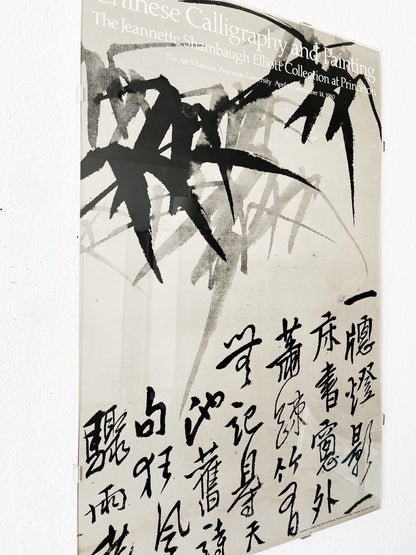 Chinese Calligraphy and Painting
The Jeannette Shambaugh Elliott Collection at Princeton
The Art Museum, Princeton University April
一牕燈影一
床書窻外
蕭疎竹有
無記天
池舊
句狂風
驟雨